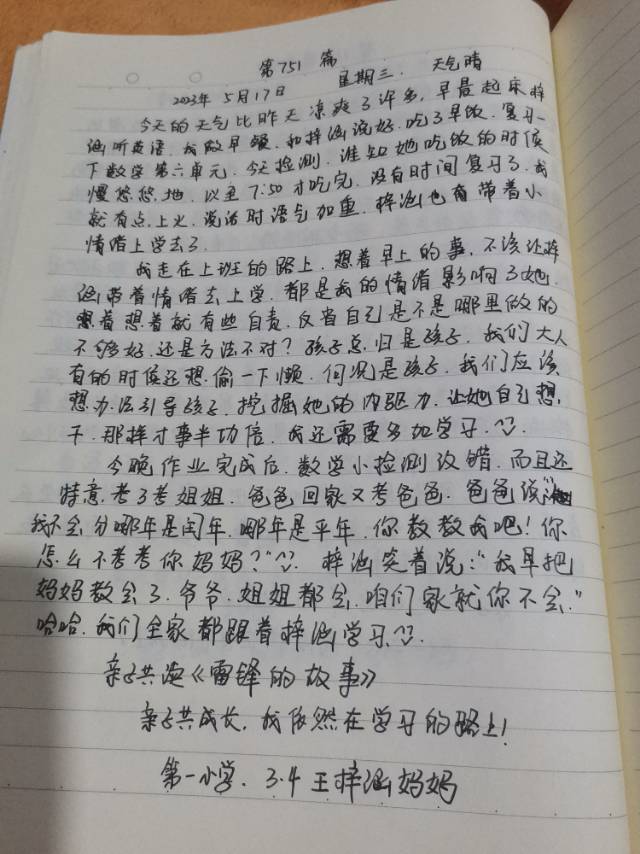 第751篇
2023年5月17日 星期三. 天气晴
今天的天气比昨天凉爽了许多, 早晨起床梓
涵听英语. 我做早饭. 和梓涵说好. 吃了早饭. 复习一
下数学第六单元. 今天检测. 谁知她吃饭的时候
慢悠悠地. 以至7:50才吃完. 没有时间复习了. 我
就有点上火. 说话时语气加重. 梓涵也有带着小
情绪上学去了.
我走在上班的路上. 想着早上的事, 不该让梓
涵带着情绪去上学. 都是我的情绪影响了她.
想着想着就有些自责. 反省自己是不是哪里做的
不够好. 还是方法不对? 孩子总归是孩子. 我们大人
有的时候还想偷一下懒. 何况是孩子. 我们应该
想办法引导孩子. 挖掘她的内驱力. 让她自己想
干. 那样才事半功倍. 我还需要多加学习.
今晚作业完成后. 数学小检测没错. 而且还
特意考了考姐姐. 爸爸回家又考爸爸. 爸爸说:"
我不会分哪年是闰年. 哪年是平年. 你教教我吧! 你
怎么不考考你妈妈?" 梓涵笑着说:"我早把
妈妈教会了. 爷爷. 姐姐都会. 咱们家就你不会."
哈哈. 我们全家都跟着梓涵学习.
亲子共读《雷锋的故事》
亲子共成长. 我依然在学习的路上!
第一小学. 3.4 王梓涵妈妈